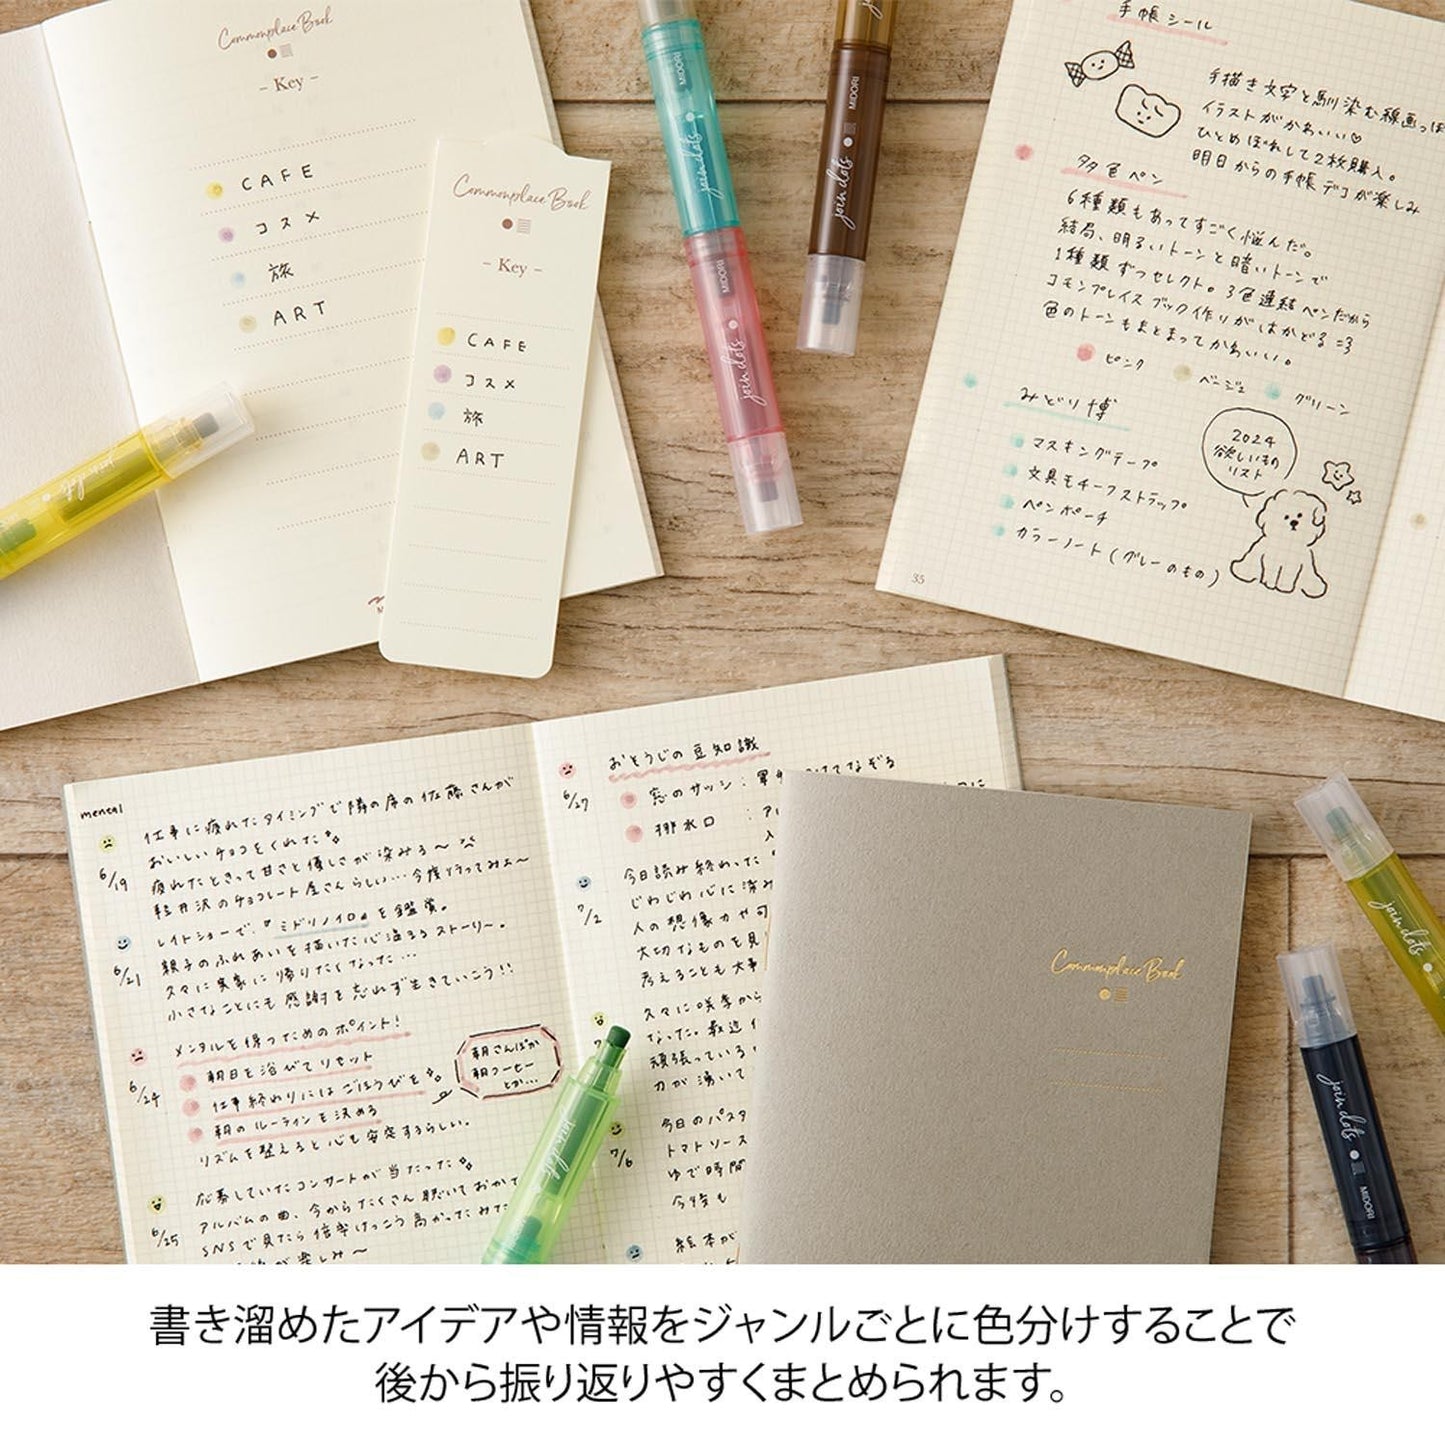 Commonplace Book
- Key -
CAFE
コスメ
旅
ART
Commonplace Book
- Key -
CAFE
コスメ
旅
ART
join dots
MIDORI
join dots
MIDORI
join dots
MIDORI
join dots
手帳シール
手描き文字と馴染む線画っぽ
イラストがかわいい♡
ひとめぼれして2枚購入。
明日からの手帳デコが楽しみ
多色ペン
6種類もあってすごく悩んだ。
結局、明るいトーンと暗いトーンで
1種類ずつセレクト。3色連結ペンだから
コモンプレイスブック作りがはかどる
色のトーンもまとまってかわいい。
ピンク
ベージュ
グリーン
みどり博
マスキングテープ
文具モチーフストラップ
ペンポーチ
カラーノート(グレーのもの)
2024
欲しいもの
リスト
35
mental
6/19
仕事に疲れたタイミングで隣の席の佐藤さんが
おいしいチョコをくれた
疲れたときって甘さと優しさが染みる〜
軽井沢のチョコレート屋さんらしい…今度行ってみよ〜
6/21
レイトショーで、『ミドリノイロ』を鑑賞。
親子のふれあいを描いた心温まるストーリー。
久々に実家に帰りたくなった…
小さなことにも感謝を忘れず生きていこう!!
6/24
メンタルを保つためのポイント!
朝日を浴びてリセット
仕事終わりにはごほうびを
朝のルーティンを決める
リズムを整えると心も安定するらしい。
朝さんぽか
朝コーヒー
とか…
6/25
応募していたコンサートが当たった
アルバムの曲、今からたくさん聴いておかて
SNSで見たら倍率けっこう高かったみた
が楽しみ〜
6/27
おとうじの豆知識
窓のサッシ:
排水口 :
7/2
今日読み終わった
じわじわ心に染み
人の想像力や可
大切なものを見
考えることも大事
久々に咲季から
なった。最近
頑張っている
力が湧いて
7/6
今日のパスタ
トマトソース
ゆで時間
今後も
絵本が
join dots
Commonplace Book
join dots
join dots
MIDORI
書き溜めたアイデアや情報をジャンルごとに色分けすることで
後から振り返りやすくまとめられます。